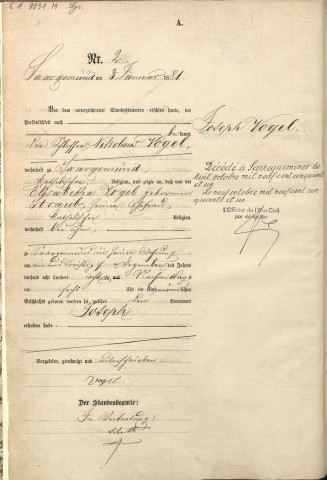 A.
Nr. 2
Saargemünd am 3 Januar 1881.
Vor dem unterzeichneten Standesbeamten erschien heute, der
Persönlichkeit nach
bekannt,
der Schlosser Nikolaus Vogel,
wohnhaft zu Saargemünd,
katholischer Religion, und zeigte an, daß von der
Elisabetha Vogel geborenen
Straub, seiner Ehefrau,
katholischer Religion,
wohnhaft bei ihm,
zu Saargemünd in seiner Wohnung
am ein und dreißigsten Dezember des Jahres
tausend acht hundert achtzig Nachmittags
um sechs Uhr ein Kind männlichen
Geschlechts geboren worden sei, welches den Vornamen
Joseph
erhalten habe
Vorgelesen, genehmigt und unterschrieben
Vogel
Der Standesbeamte:
In Vertretung:
Joseph Vogel.
Décédé à Sarreguemines le
huit octobre mil neuf cent cinquante
et un
Le neuf octobre mil neuf cent cin-
quante et un
L'Officier de l'Etat-Civil
par délégation